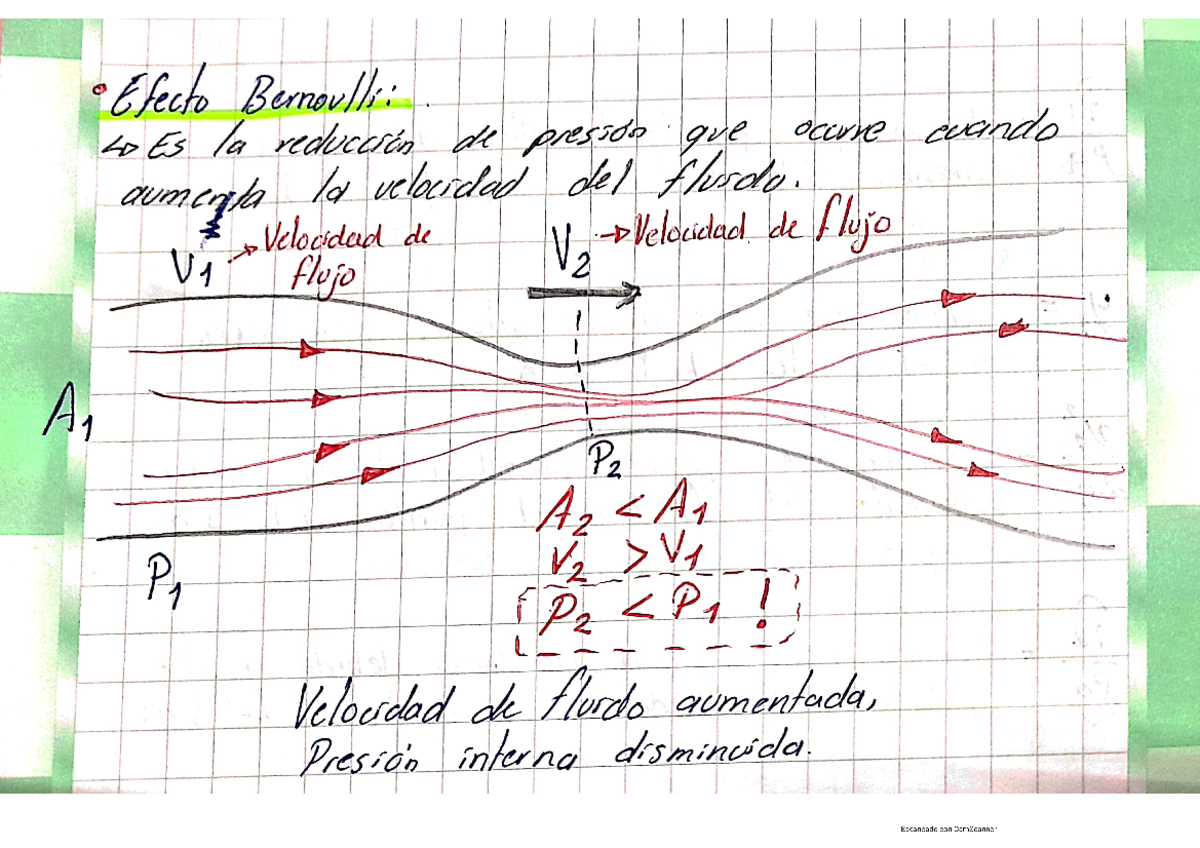 • Efecto Bernoulli:
↳ Es la reducción de presión que ocurre cuando
aumenta la velocidad del fluido.
V1 → Velocidad de
flujo
V2 → Velocidad de flujo
A1
P2
P1
A2 < A1
V2 > V1
P2 < P1 !
Velocidad de fluido aumentada,
Presión interna disminuida.
Escaneado con CamScanner